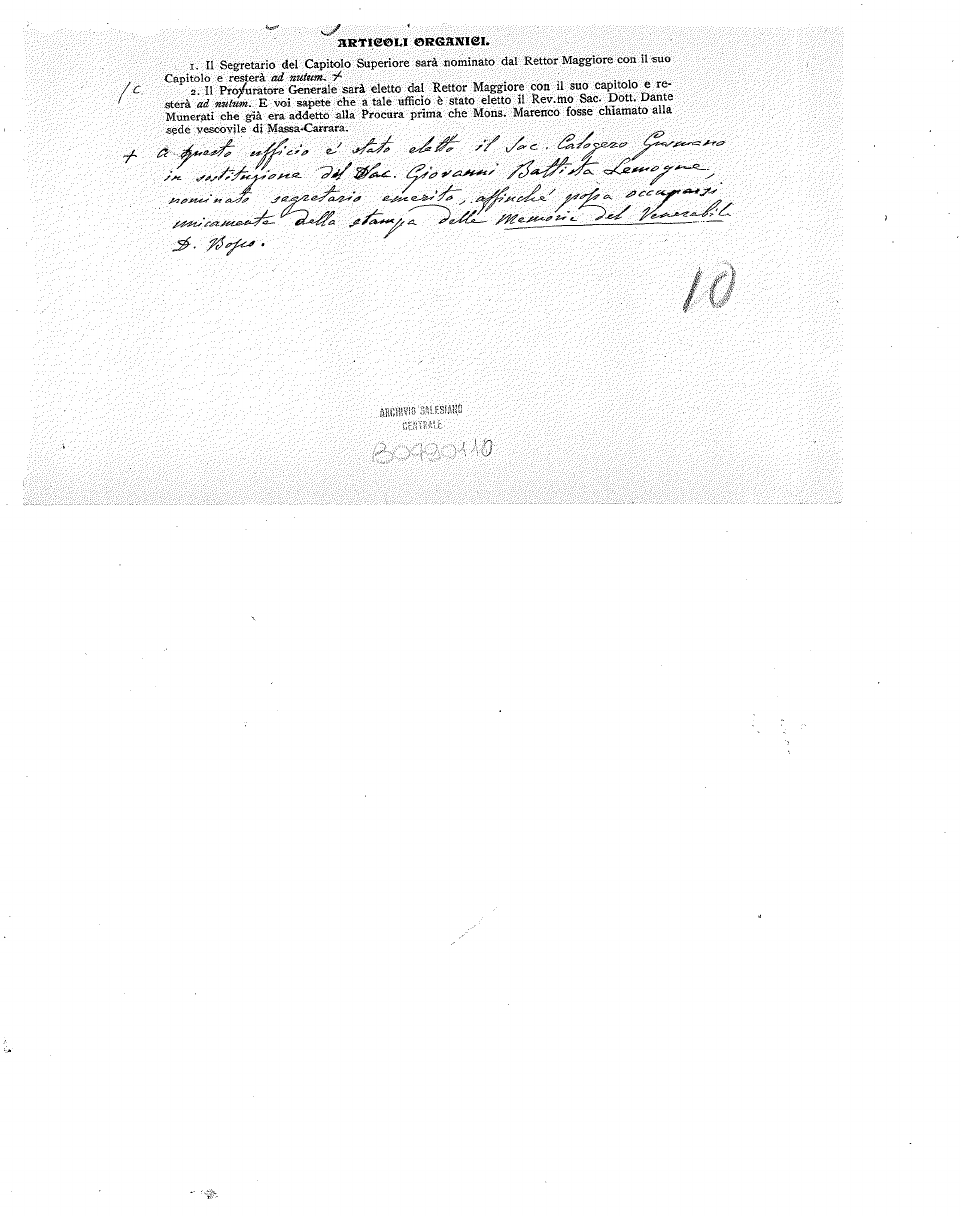 ARTICOLI ORGANICI.
1. Il Segretario del Capitolo Superiore sarà nominato dal Rettor Maggiore con il suo
Capitolo e resterà ad nutum. +
/c 2. Il Profuratore Generale sarà eletto dal Rettor Maggiore con il suo capitolo e re-
sterà ad nutum. E voi sapete che a tale ufficio è stato eletto il Rev.mo Sac. Dott. Dante
Munerati che già era addetto alla Procura prima che Mons. Marenco fosse chiamato alla
sede vescovile di Massa-Carrara.
+ A questo ufficio è stato eletto il Sac. Calogero Gusmano
in sostituzione del Sac. Giovanni Battista Lemoyne,
nominato segretario emerito, affinché possa occuparsi
unicamente della stampa delle Memorie del Venerabile
D. Bosco.
10
ARCHIVIO SALESIANO
CENTRALE
B0490110